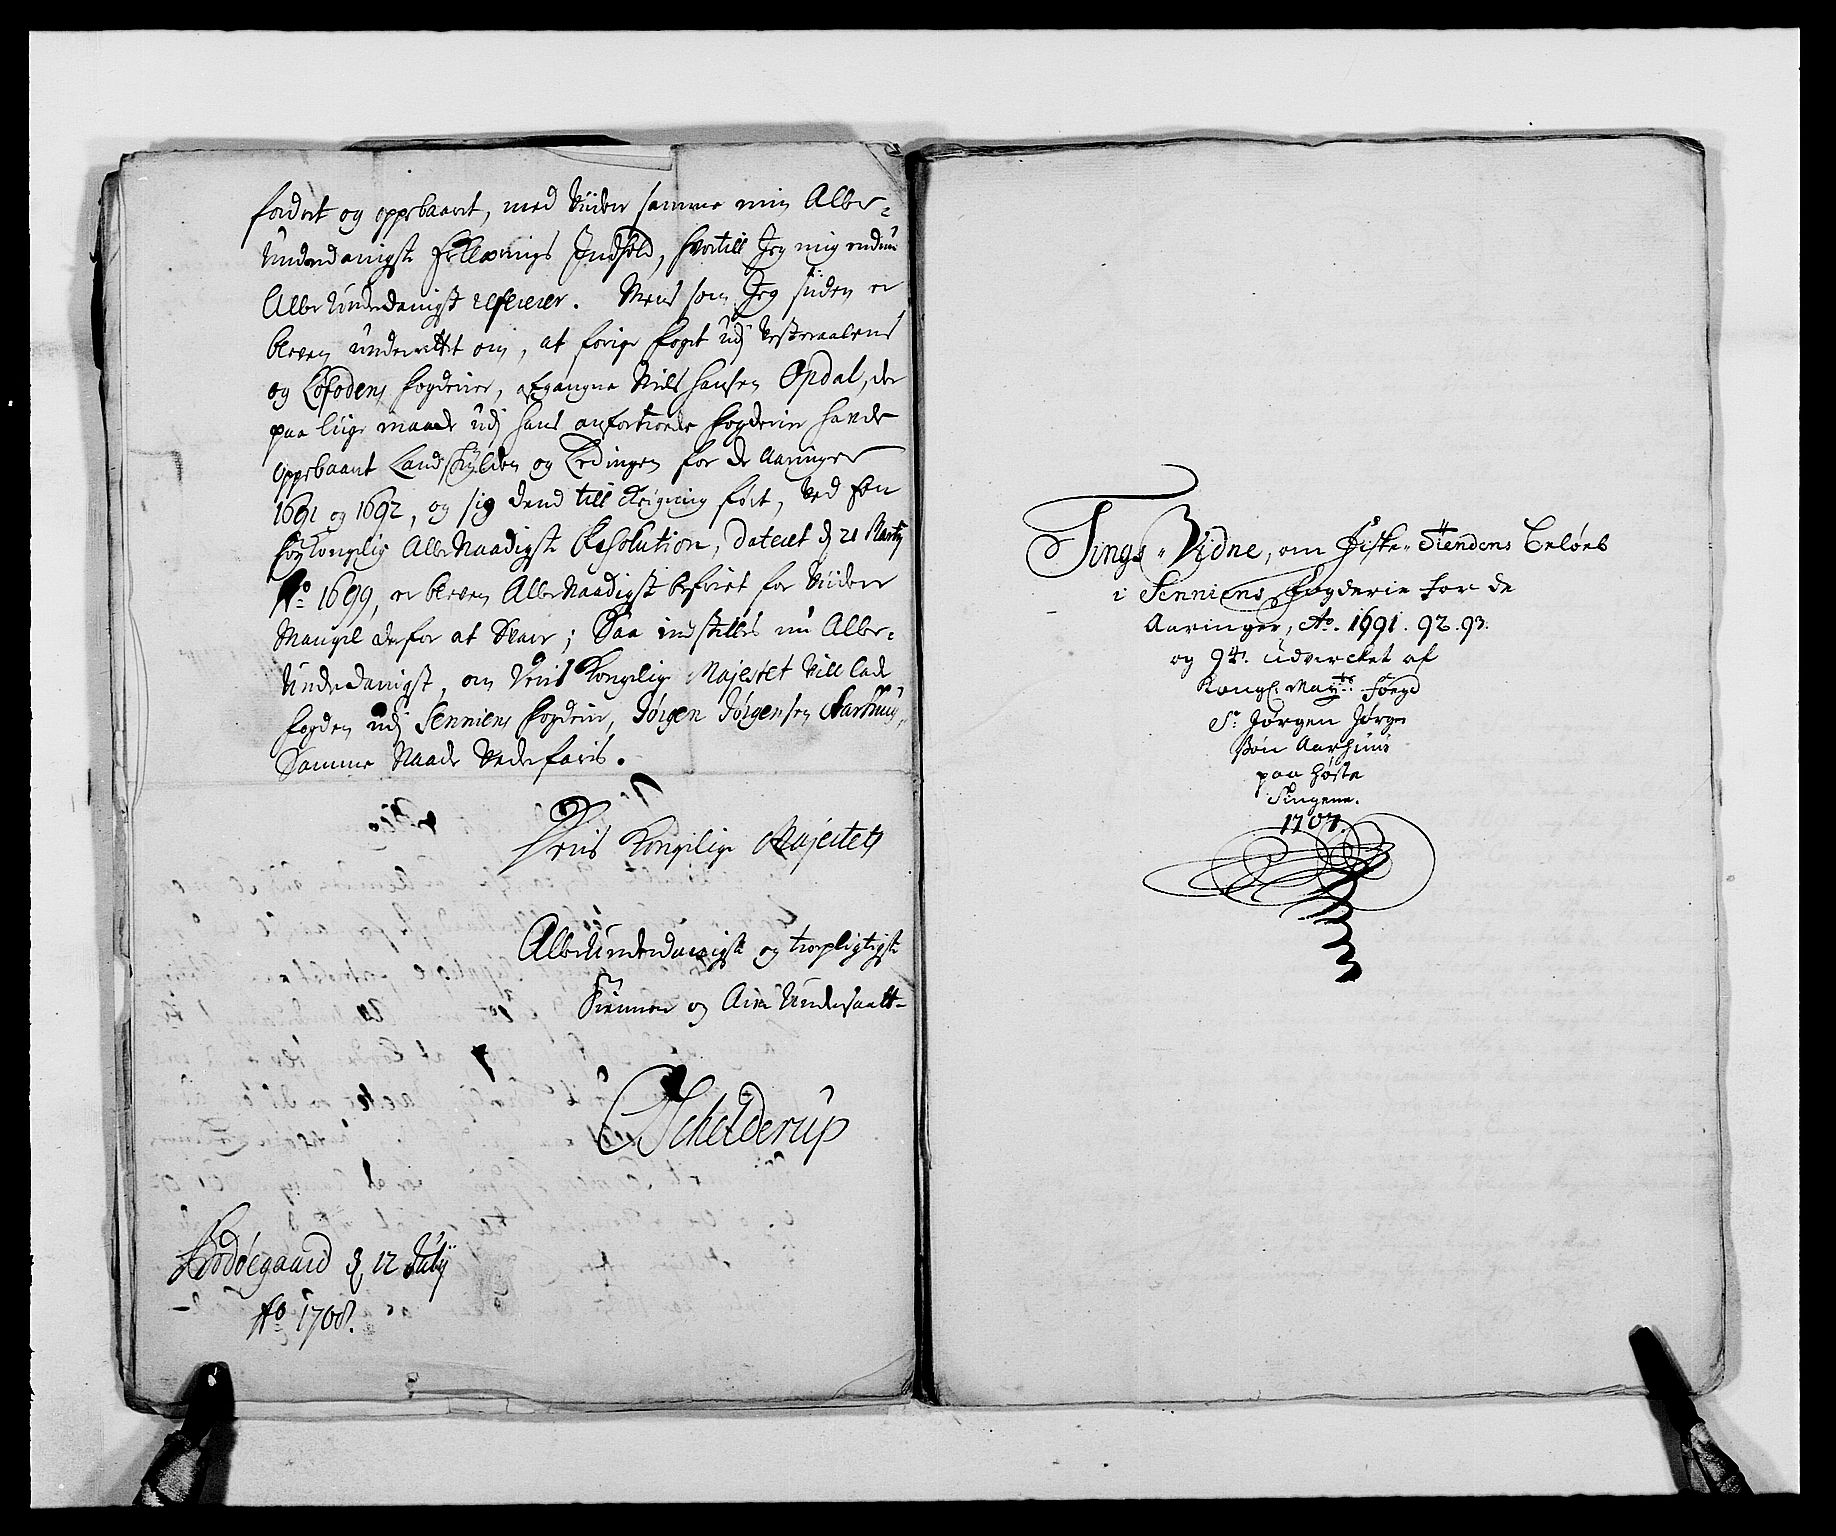 fordret og oppebaaret, med viidere samme min Aller-
Underdanigste Erklærings Indhold, hvortill Jeg mig endnu
Aller Underdanigst refererer. Mens som Jeg siiden er
bleven underrettet om, at forige foget udj Vesteraalens
og Lofodens fogderier, afgangne Niels Hansen Opdal, der
paa liige maade udj hans anfortroede fogderie hafde
oppebaaret Landskylden og Ledingen for de Aaringer
1691 og 1692, og sig dend till Reigning ført, ved een
høy Kongelig Aller Naadigste Resolution, dateret d 21 Marty
Ao 1699, er bleven Aller Naadigst befriet for viidere
Mangel derfor at svare; Saa indstilles nu Aller-
Underdanigst, om Eris Kongelig Majestet vill lade
fogden udj Senniens fogderie, Jørgen Jørgensen Aarhuus,
Samme Naade vederfaris.
Eris Kongelige Majestets
Allerunderdanigste og troepligtigste
Tienner og Arve Undersaatt-
Schelderup
Bodøegaard d 12 July
Ao 1708.
Tings-Vidne, om Fiske-Tiendens Beløeb
i Senniens Fogderie for de
Aaringer, Ao. 1691. 92. 93.
og 94. udvercket af
Kongl. Mayts: foegd
Sr Jørgen Jørgen
søn Aarhuus
paa høste
Tingene.
1707.